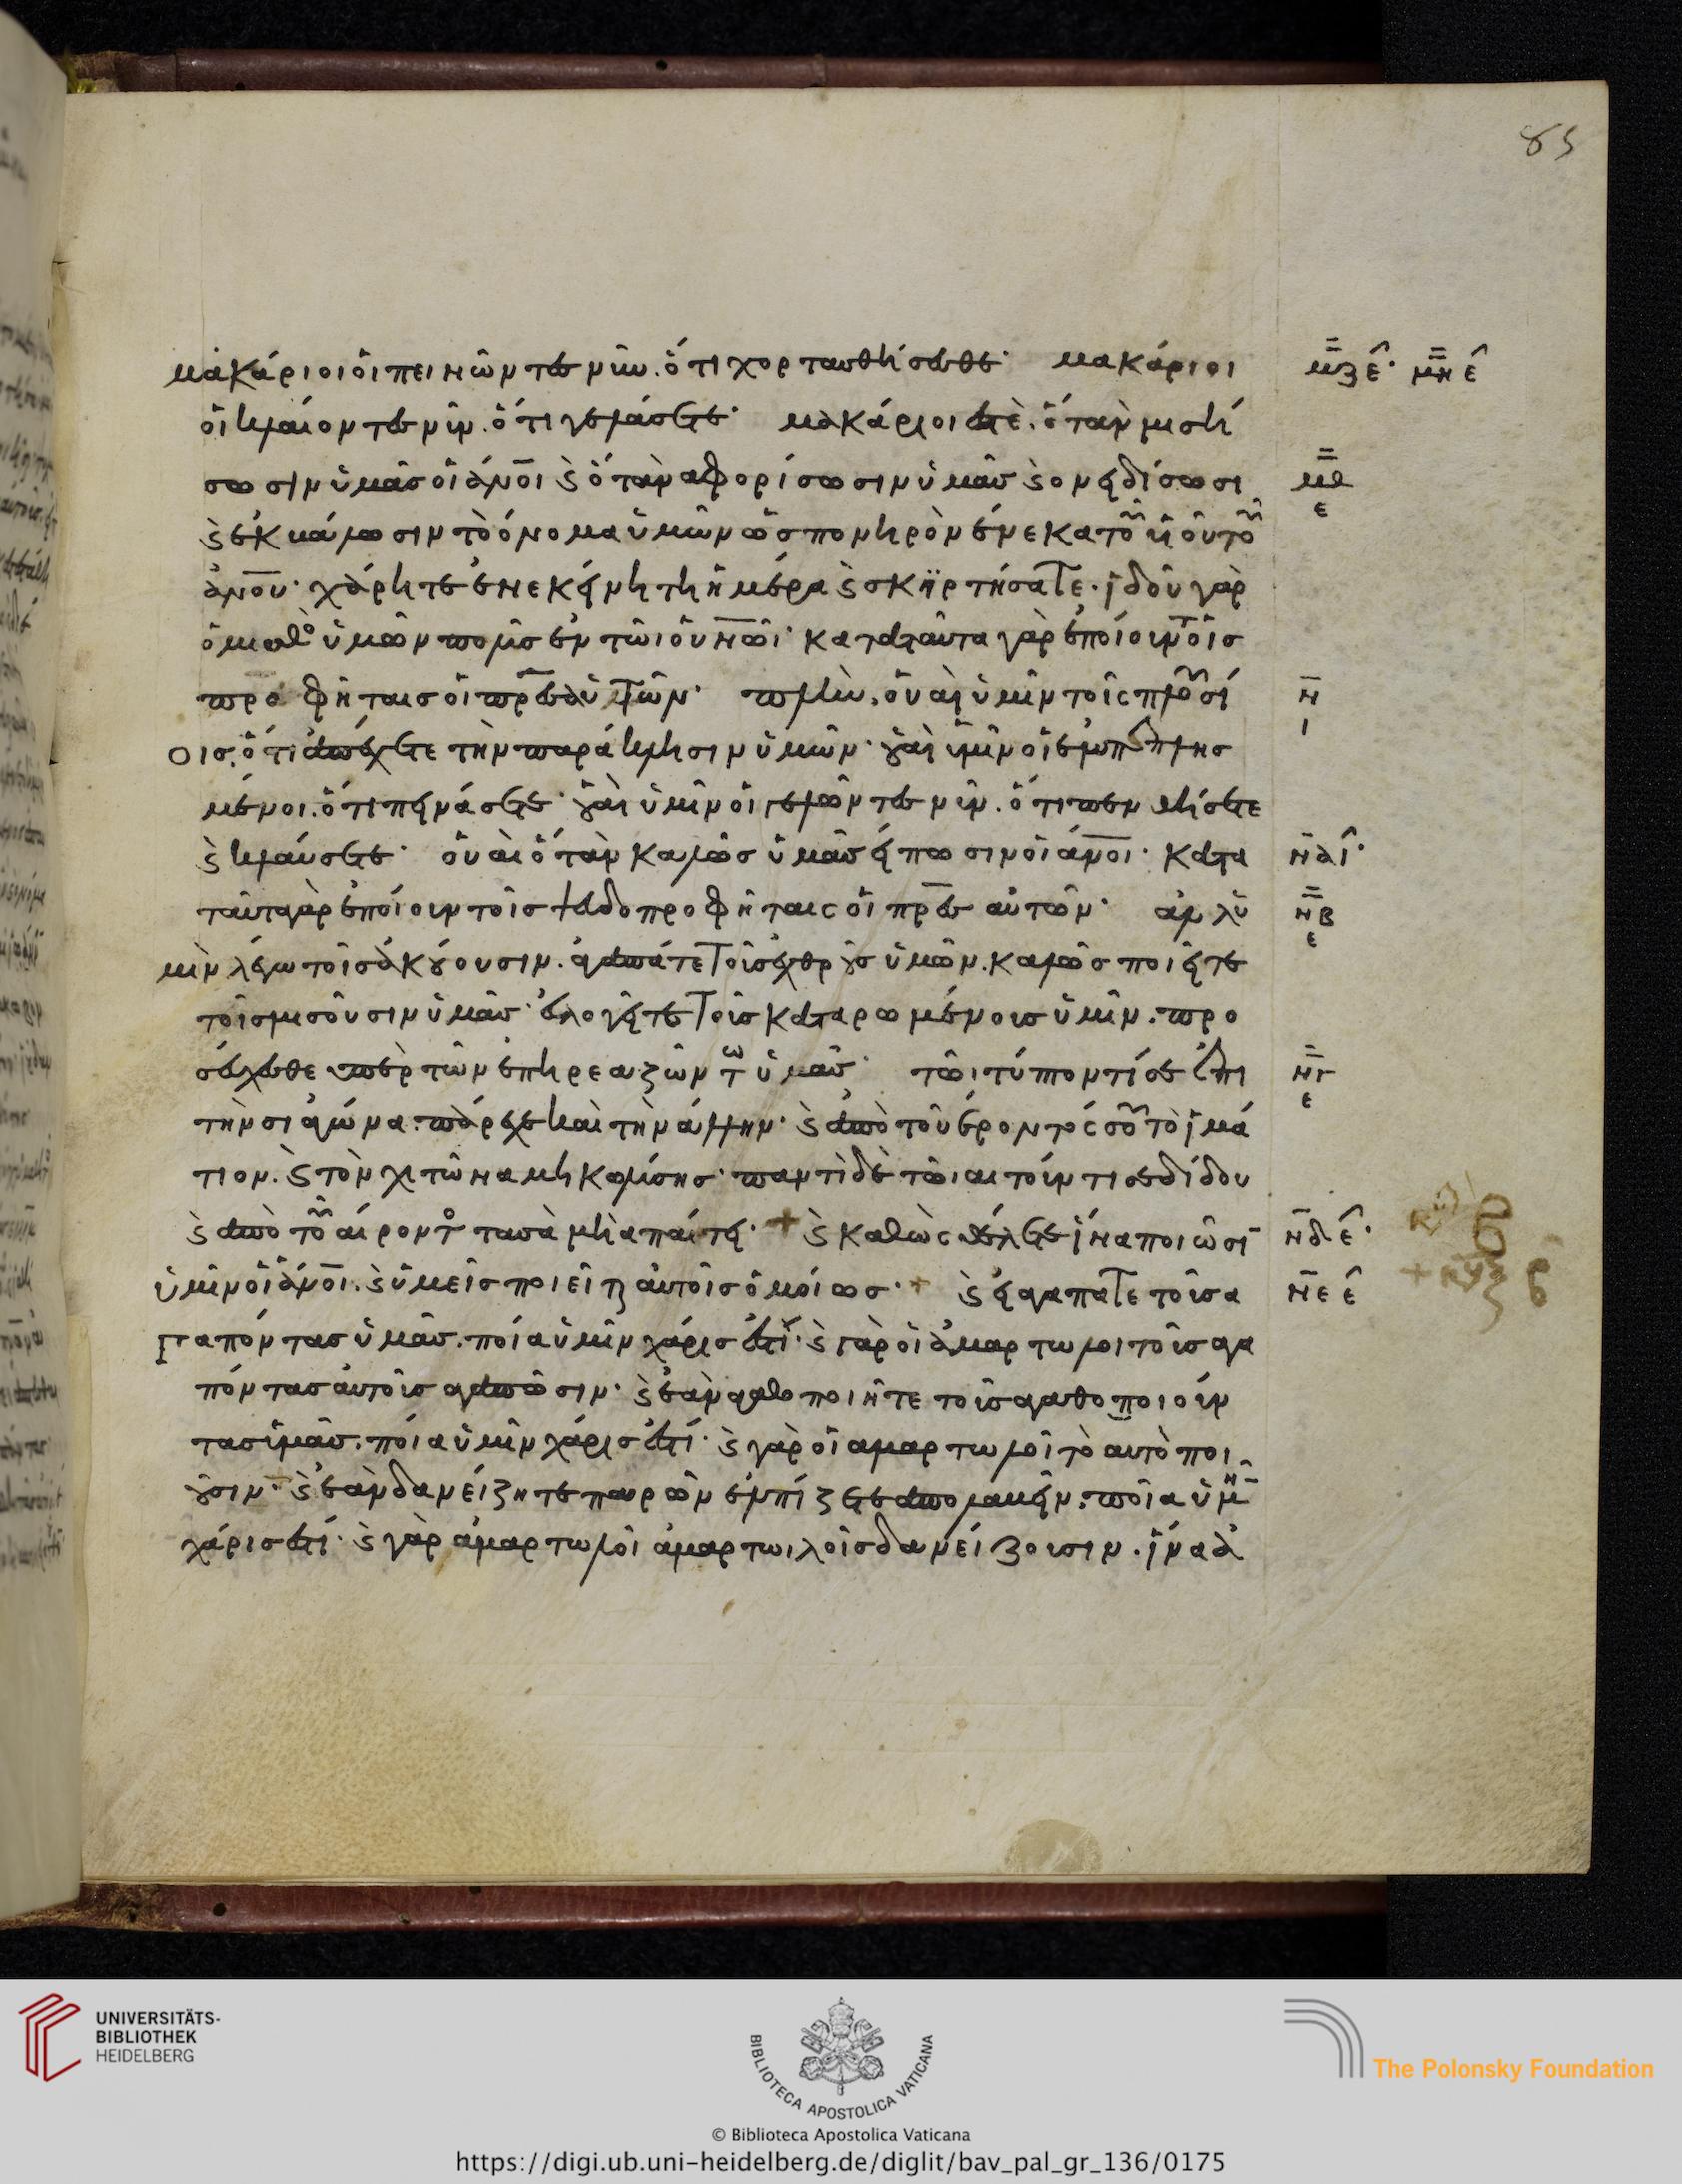 85
μακάριοι οἱ πεινῶντες νῦν. ὅτι χορτασθήσεσθε· μακάριοι
οἱ κλαίοντες νῦν. ὅτι γελάσεσθε· μακάριοι ἐστὲ. ὅταν μισή
σωσιν ὑμᾶς οἱ ἄνοι ϛ ὅταν ἀφορίσωσιν ὑμᾶς ϛ ονηδίσωσι
ϛ ἐκβάλωσιν τὸ ὄνομα ὑμῶν ὡς πονηρὸν ἕνεκα τοῦ υἱοῦ τοῦ
ἀνου· χάρητε ἐνεκήνη τη ἡμέρα ϛ σκηρτήσατε. ϊδοῦ γὰρ
ὁ μισθὸ ὑμῶν πολῦς ἐν τῶι οὐνῶι· κατα ταῦτα γὰρ ἐποίουν τοῖς
προφήταις οἱ πρες αὐτῶν· πλὴν. οὐαὶ ὑμῖν τοῖς πλουσί
οις. ὅτι ἀπέχετε τὴν παράκλησιν ὑμῶν· οὐαὶ ὑμῖν οἱ ἐμπεπλησ
μένοι. ὅτι πηνάσετε· οὐαι ὑμῖν οἱ γελῶντες νῦν. ὅτι πενθήσετε
ϛ κλαύσετε· οὐαι ὅταν καλῶς ὑμᾶς είπωσιν οἱ άνοι· κατα
ταῦτα γὰρ ἐποίουν τοῖς ψευδοπροφήταις οἱ πρες αὐτῶν· αλλ ὑ
μῖν λέγω τοῖς ἀκούουσιν. ἀγαπάτε τοῖς ἐχθροῦς ὑμῶν. καλῶς ποιεῖτε
τοῖς μισοῦσιν ὑμᾶς· εὐλογεῖτε τοῖς καταρωμένοις ὑμῖν. προ
σέυχεσθε ὑπὲρ τῶν ἐπηρεαζῶντω ὑμᾶς· τῶι τύπτοντί σε ἐπι
τὴν σιαγώνα. πάρεχε καὶ τὴν ἄλλην· ϛ ἀπὸ τοῦ ἔροντός σοῦ τὸ ϊμά
τιον. ϛ τὸν χιτῶνα μη κολύσης· παντὶ δὲ τῶι αιτούντι σε δίδου
ϛ ἀπὸ τοῦ αίροντο τα σὰ μὴ απαίτει· + ϛ καθὼς θέλετε ϊνα ποιῶσι
ὑμῖν οἱ ἄνοι. ϛ ὑμεῖς ποιεῖτε αὐτοῖς ὁμοίως· + ϛ εἰ αγαπατε τοῖς α
γαπόντας ὑμᾶς. ποία ὑμῖν χάρις ἐστί· ϛ γὰρ οἱ ἁμαρτωλοι τοῖς αγα
πόντας αὐτοῖς αγαπῶσιν· ϛ ἐὰν αγαθοποιῆτε τοῖς αγαθοποιούν
τας ὑμᾶς. ποία ὑμῖν χάρις ἐστί· ϛ γὰρ οἱ αμαρτωλοῖ τὸ αυτὸ ποι
οῦσιν· ϛ ἐὰν δανείζητε παρ ῶν ἐλπίζετε απολαβεῖν. ποῖα ὑμῖν
χάρις ἐστί· ϛ γὰρ ἁμαρτωλοὶ ἁμαρτωιλοῖς δανείζουσιν. ϊνα ἀ
μζ ε· μη ε
μθ
ε
ν
ι
να ι·
νβ
ε
νγ
ε
νδ ε·
νε ε
UNIVERSITÄTS-
BIBLIOTHEK
HEIDELBERG
BIBLIOTECA APOSTOLICA VATICANA
The Polonsky Foundation
© Biblioteca Apostolica Vaticana
https://digi.ub.uni-heidelberg.de/diglit/bav_pal_gr_136/0175